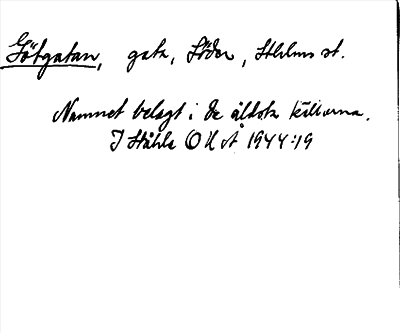 Götgatan, gata, Söder, Sthlms st.
Namnet belagt i de äldsta källorna.
I Ståhle OUÅ 1944:19